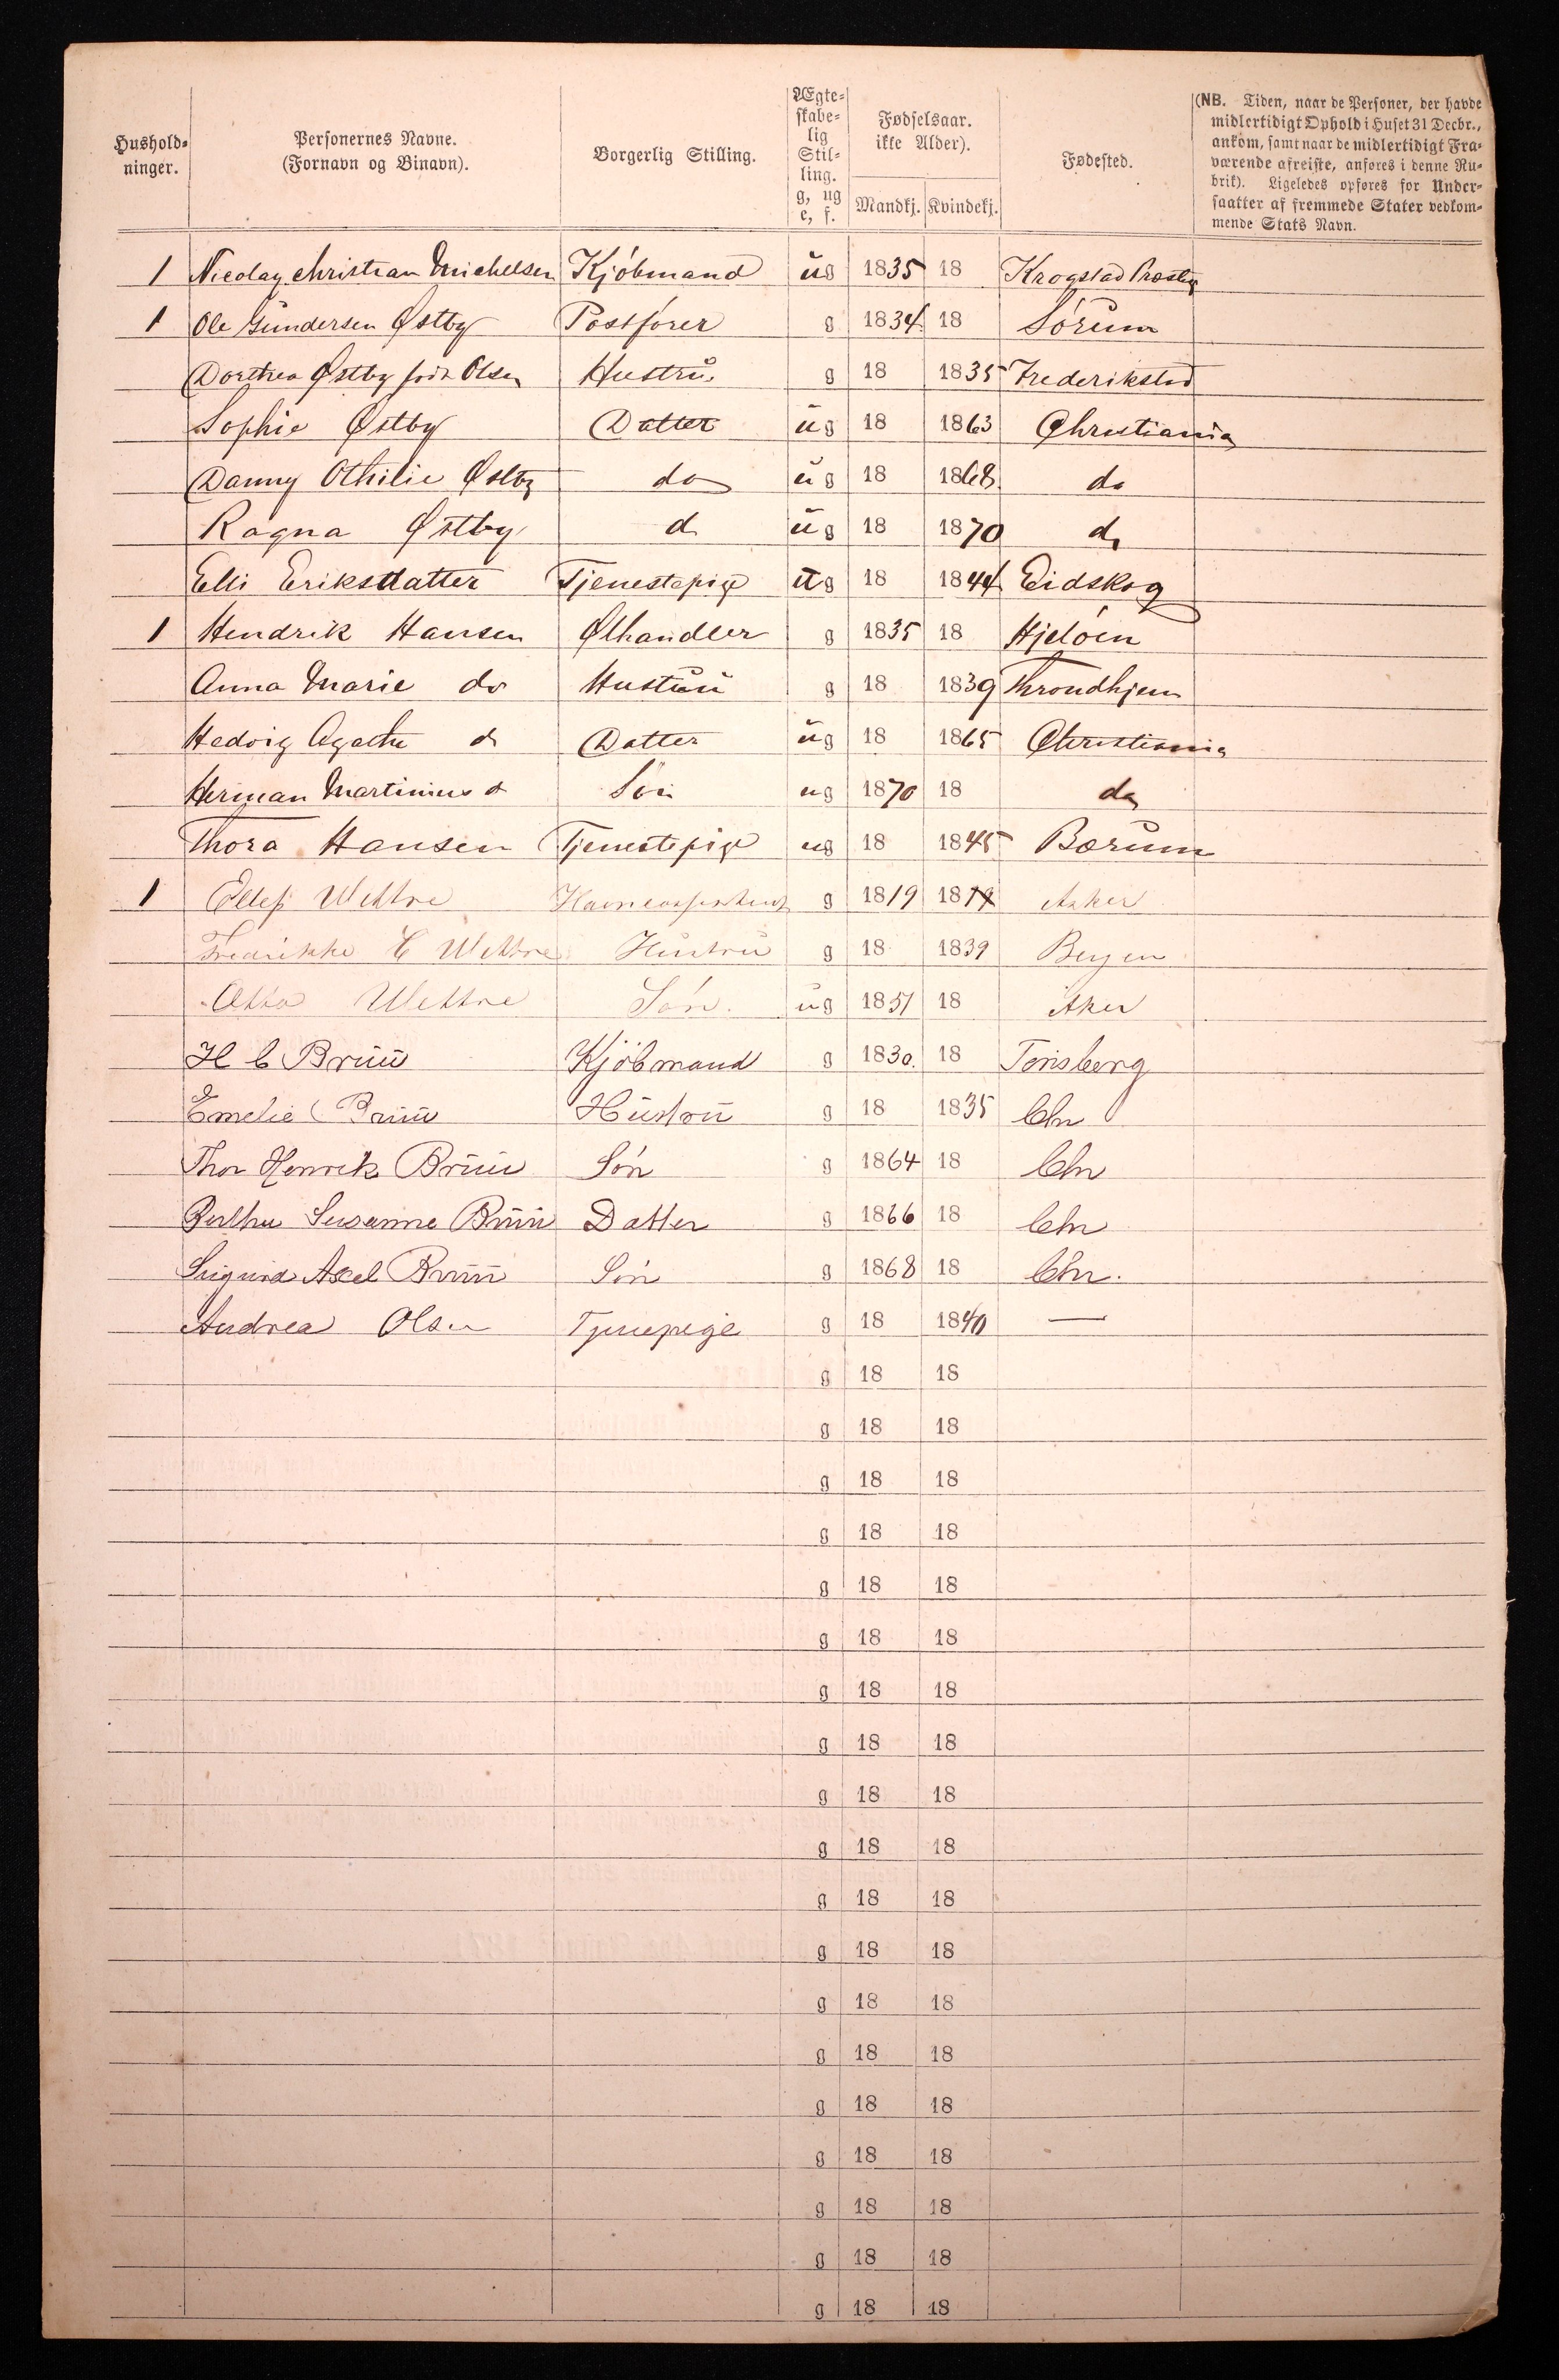 Hushold-
ninger.
Personernes Navne.
(Fornavn og Binavn).
Borgerlig Stilling.
Ægte-
skabe-
lig
Stil-
ling.
g, ug
e, f.
Fødselsaar.
ikke Alder).
Mandkj. Kvindekj.
Fødested.
(NB. Tiden, naar de Personer, der havde
midlertidigt Ophold i Huset 31 Decbr.,
ankom, samt naar de midlertidigt Fra-
værende afreiste, anføres i denne Ru-
brik). Ligeledes opføres for Under-
saatter af fremmede Stater vedkom-
mende Stats Navn.
1 Nicolay Christian Michelsen Kjöbmand ug 1835 18 Krogstad Præstg
1 Ole Gundersen Østby Postförer g 1834 18 Sörum
Dorthea Østby född Olsen Hustru. g 18 1835 Frederikstad
Sophie Østby Datter ug 18 1863 Christiania
Danny Othilie Østby do ug 18 1868 do
Ragna Østby d ug 18 1870 do
Elli Eriksdatter Tjenestepige ug 18 1844 Eidskog
1 Hendrik Hansen Ølhandler g 1835 18 Hjelöen
Anna Marie do Hustru g 18 1839 Throndhjem
Hedvig Agathe d Datter ug 18 1865 Christiania
Herman Martinius d Sön ug 1870 18 do
Thora Hansen Tjenestepige ug 18 1845 Bærum
1 Ellef Wettre g 1819 18 Asker
Fredrikke C Wettre Hustru g 18 1839 Bergen
Otto Wettre Sön. ug 1851 18 Aker
H C Bruu Kjöbmand g 1830. 18 Tönsberg
Emelie Bruu Hustru g 18 1835 Chr
Thor Henrik Bruu Sön g 1864 18 Chr
Susanne Bruu Datter g 1866 18 Chr
Sigurd Axel Bruu Sön g 1868 18 Chr.
Andrea Olsen Tjenepige g 18 1840 —
g 18 18
g 18 18
g 18 18
g 18 18
g 18 18
g 18 18
g 18 18
g 18 18
g 18 18
g 18 18
g 18 18
g 18 18
g 18 18
g 18 18
g 18 18
g 18 18
g 18 18
g 18 18
g 18 18